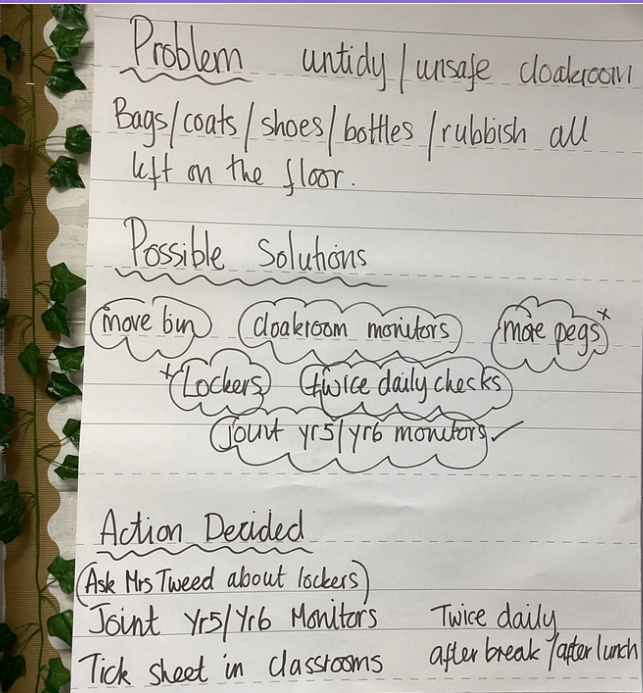 Problem untidy / unsafe cloakroom
Bags/coats/shoes/bottles/rubbish all
left on the floor.
Possible Solutions
move bin cloakroom monitors more pegs x
+ Lockers twice daily checks
Joint yr5/yr6 monitors ✓
Action Decided
(Ask Mrs Tweed about lockers)
Joint Yr5/Yr6 Monitors Twice daily
after break /after lunch
Tick sheet in classrooms